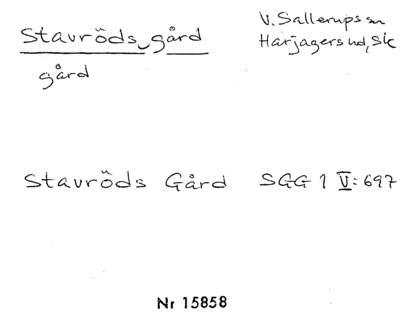 Stavröds gård
V. Sallerups sn
Harjagers hd, Sk
gård
Stavröds Gård SGG 1 V: 697
Nr 15858